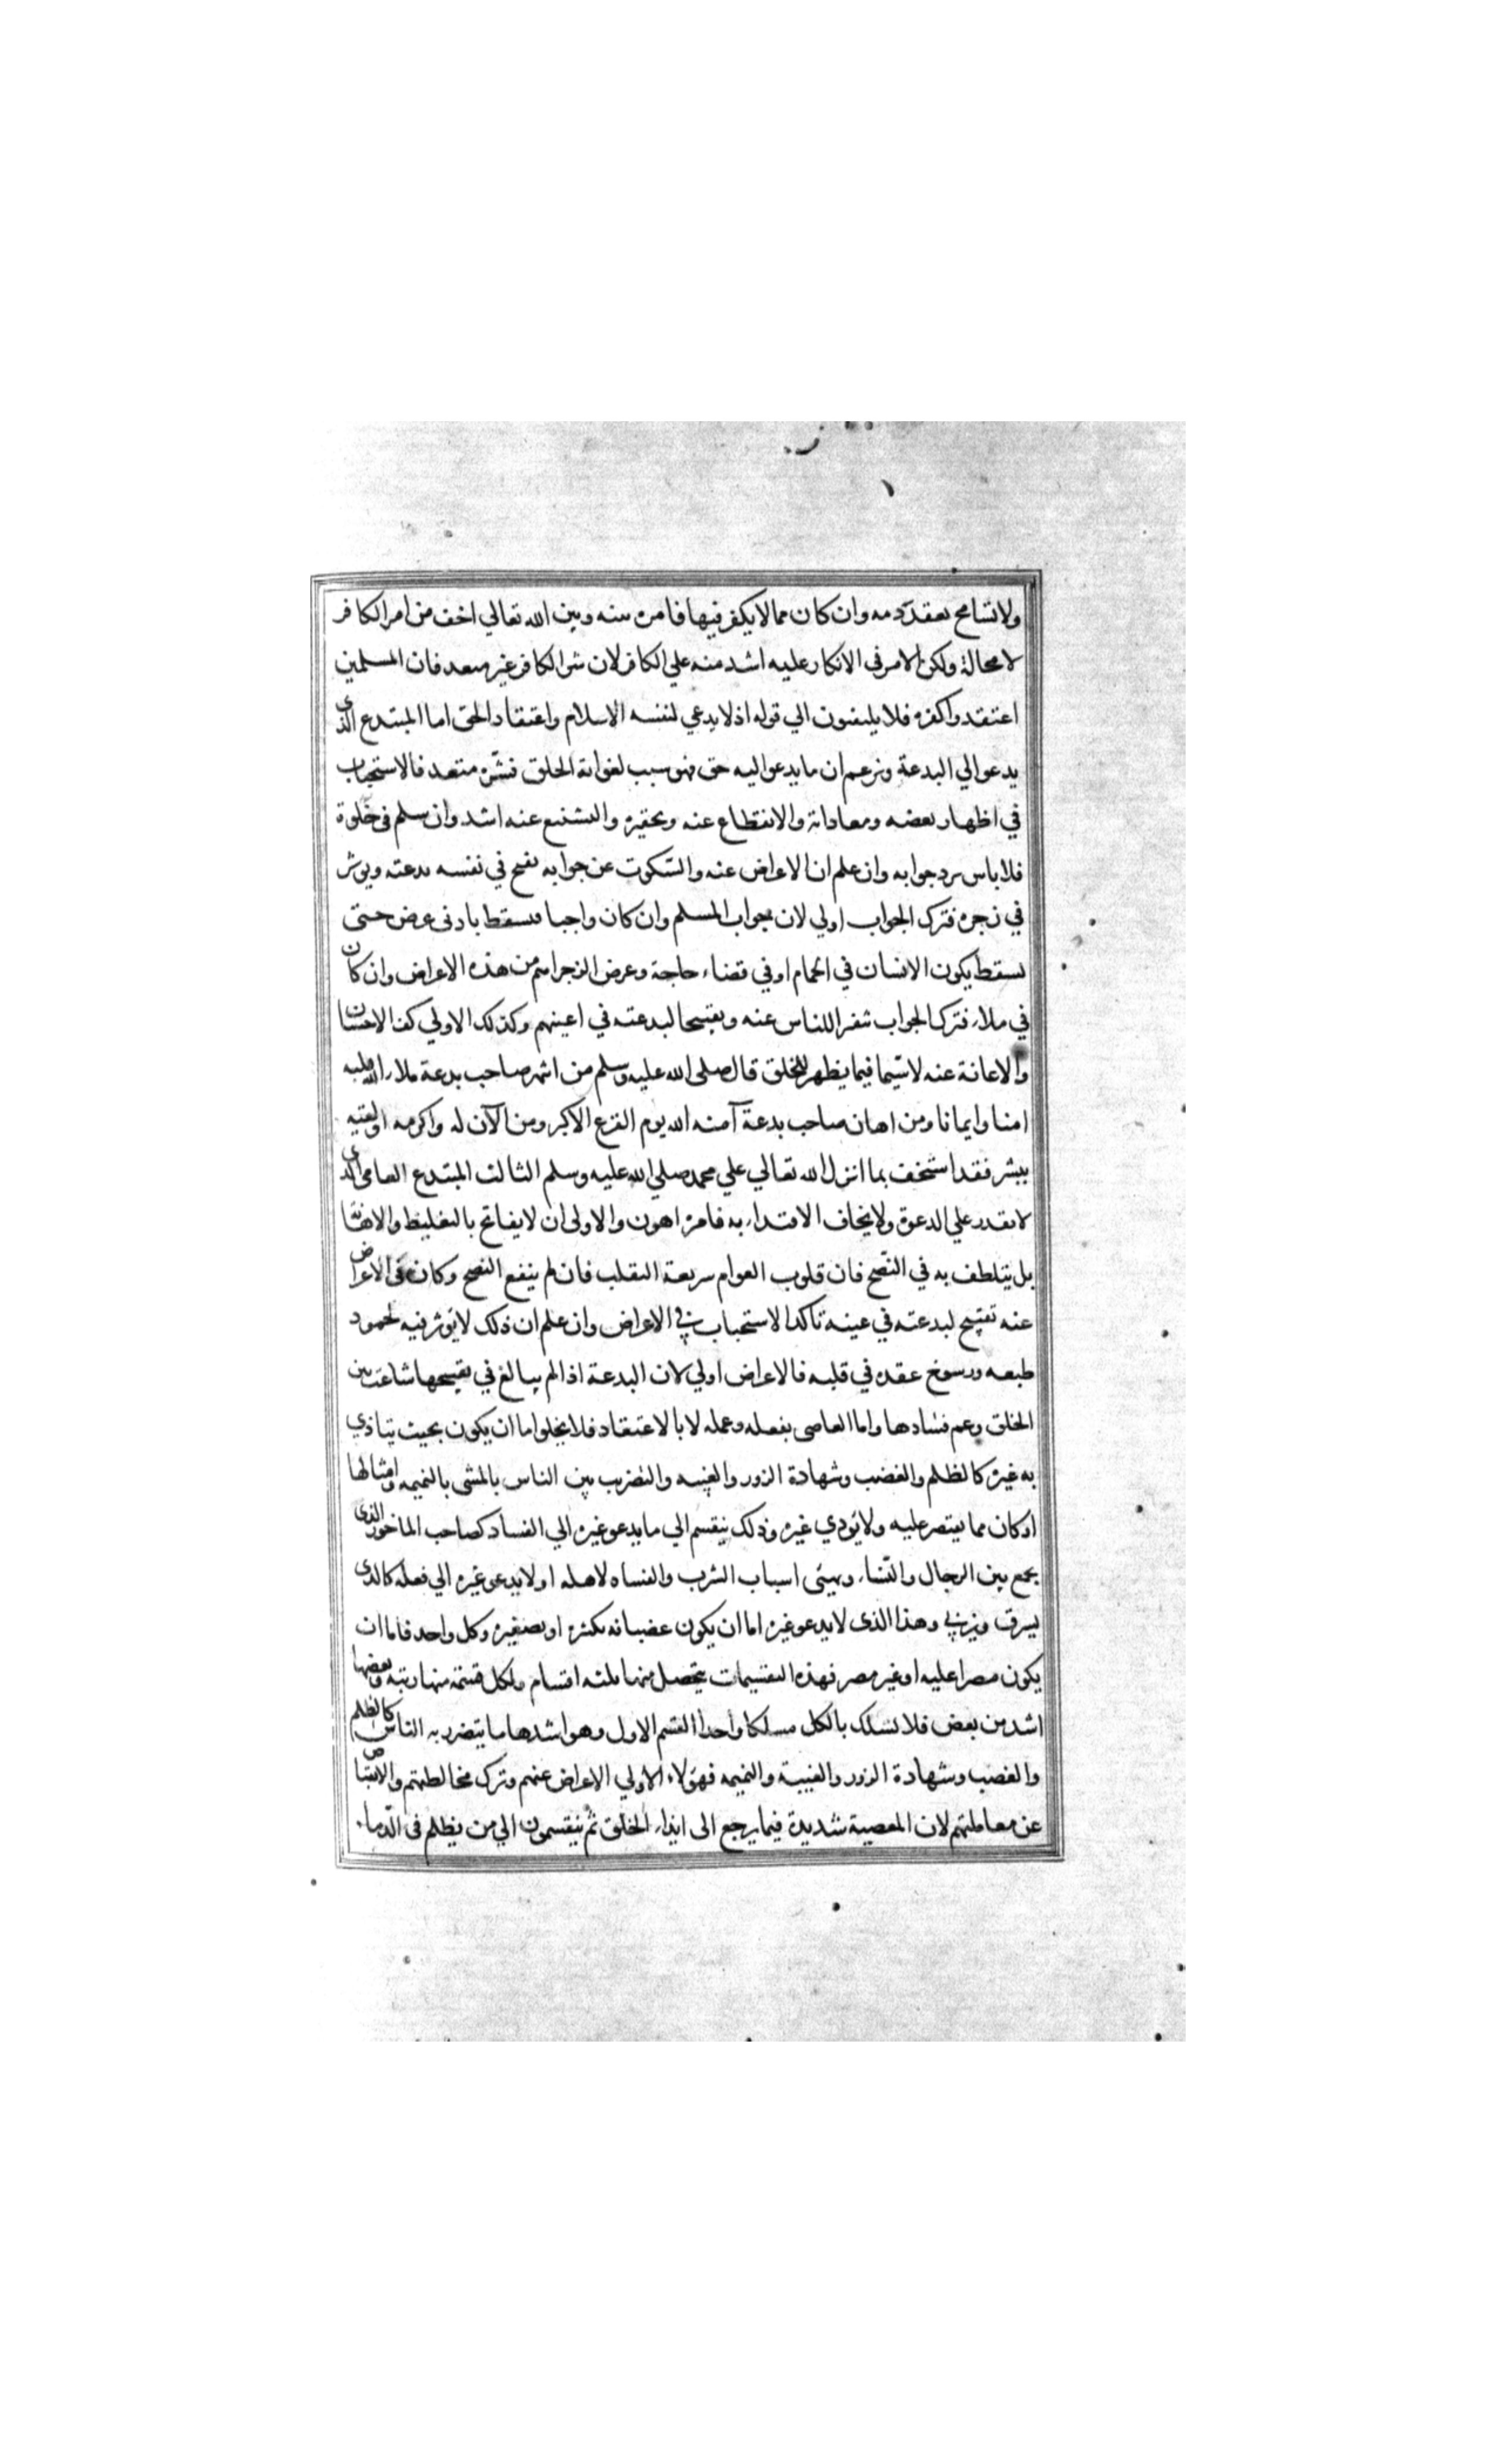 ولا تسامح بعقد ذمه وان كان مما لا يكفر فيها فامره بينه وبين الله تعالي اخف من امر الكافر
لا محالة ولكن الامر في الانكار عليه اشد منه علي الكافر لان شر الكافر غير متعد فان المسلمين
اعتقدوا كفره فلا يلتفتون الي قوله اذ لا يدعي لنفسه الاسلام واعتقاد الحق اما المبتدع الذي
يدعو الي البدعة ويزعم ان ما يدعو اليه حق فهو سبب لغواية الخلق فشره متعد فالاستحباب
في اظهار بغضه ومعاداته والانقطاع عنه وتحقيره والتشنيع عنه اشد وان سلم في خلوة
فلا باس برد جوابه وان علم ان الاعراض عنه والسكوت عن جوابه يقبح في نفسه بدعته ويوثر
في زجره فترك الجواب اولي لان جواب المسلم وان كان واجبا فيسقط بادنى عرض حتى
يسقط بكون الانسان في الحمام او في قضاء حاجة وعرض الزجر اهم من هذه الاعراض وان كان
في ملاء فترك الجواب تنفيرا للناس عنه وتقبيحا لبدعته في اعينهم وكذلك الاولي كف الاحسان
والاعانة عنه لا سيما فيما يظهر للخلق قال صلى الله عليه وسلم من انتهر صاحب بدعة ملاء الله قلبه
امنا وايمانا ومن اهان صاحب بدعة آمنه الله يوم الفزع الاكبر ومن الآن له واكرمه او لقيه
ببشر فقد استخف بما انزل الله تعالي علي محمد صلي الله عليه وسلم الثالث المبتدع العامي الذي
لا يقدر علي الدعوة ولا يخاف الاقتداء به فامره اهون والاولى ان لا يفاتح بالتغليظ والاهانة
بل يتلطف به في النصح فان قلوب العوام سريعة التقلب فان لم ينفع النصح وكان في الاعراض
عنه تقبيح لبدعته في عينه تاكد الاستحباب في الاعراض وان علم ان ذلك لا يؤثر فيه لجمود
طبعه ورسوخ عقده في قلبه فالاعراض اولي لان البدعة اذا لم يبالغ في تقبيحها شاعت بين
الخلق وعم فسادها واما العاصى بفعله وعمله لا بالاعتقاد فلا يخلوا اما ان يكون بحيث يتاذي
به غيره كالظلم والغضب وشهادة الزور والغيبه والتضريب بين الناس بالمشى بالنميمه وامثالها
او كان مما يقتصر عليه ولا يؤدي غيره وذلك ينقسم الي ما يدعو غيره الي الفساد كصاحب الماخور الذي
يجمع بين الرجال والنساء ويهيئى اسباب الشرب والفساد لاهله او لا يدعو غيره الي فعله كالذي
يسرق ويزني وهذا الذى لا يدعو غيره اما ان يكون عصيانه بكبيره او بصغيره وكل واحد فاما ان
يكون مصرا عليه او غير مصر فهذه التقسيمات يتحصل منها ثلثه اقسام ولكل قسمة منها رتبة وبعضها
اشد من بعض فلا نسلك بالكل مسلكا واحدا القسم الاول وهو اشدها ما يتضرر به الناس كالظلم
والغصب وشهادة الزور والغيبة والنميمه فهؤلاء الاولي الاعراض عنهم وترك مخالطتهم والانقباض
عن معاملتهم لان المعصية شديدة فيما يرجع الى ايذاء الخلق ثم ينقسمون الي من يظلم في الدماء